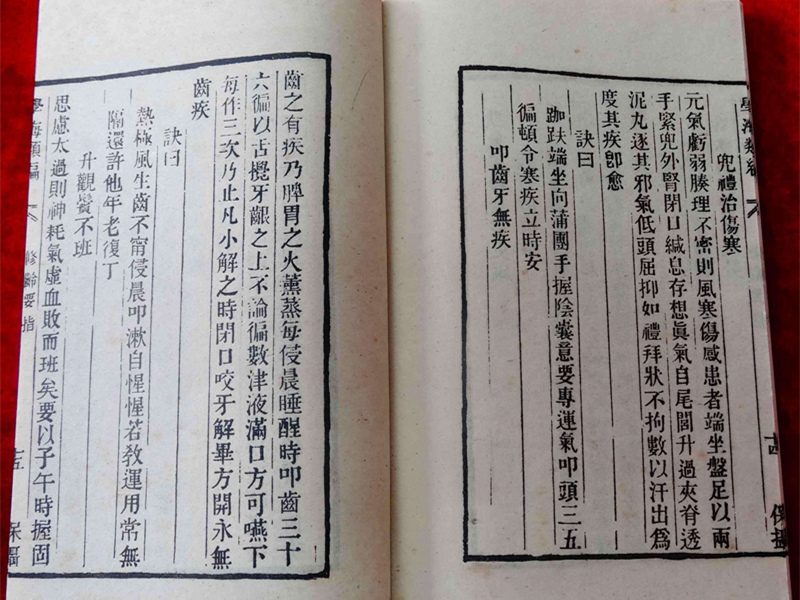 兜禮治傷寒
元氣虧弱腠理不密則風寒傷感患者端坐盤足以兩
手緊兜外腎閉口緘息存想眞氣自尾閭升過夾脊透
泥丸逐其邪氣低頭屈抑如禮拜狀不拘數以汗出爲
度其疾卽愈
訣曰
跏趺端坐向蒲團手握陰囊意要專運氣叩頭三五
徧頓令寒疾立時安
叩齒牙無疾
齒之有疾乃脾胃之火薰蒸每侵晨睡醒時叩齒三十
六徧以舌攪牙齦之上不論徧數津液滿口方可嚥下
每作三次乃止凡小解之時閉口咬牙解畢方開永無
齒疾
訣曰
熱極風生齒不甯侵晨叩漱自惺惺若敎運用常無
隔還許他年老復丁
升觀鬢不班
思慮太過則神耗氣虛血敗而班矣要以子午時握固
學海類編
修齡要指
保攝